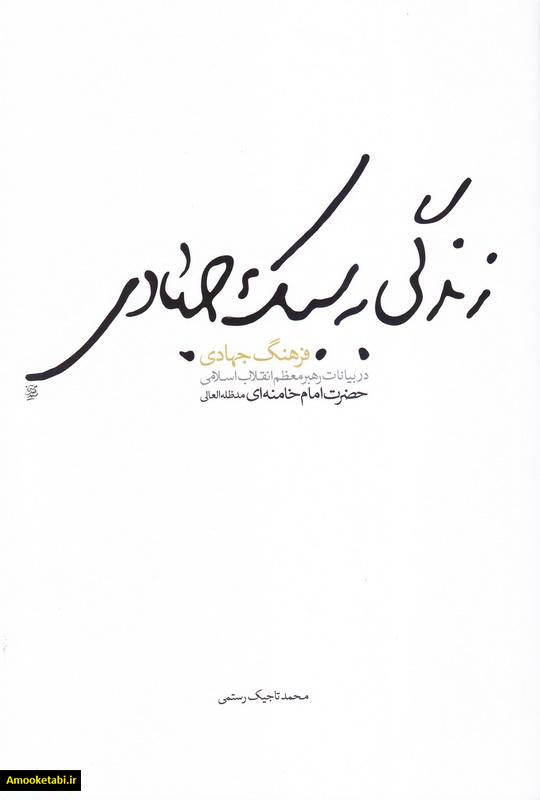 زندگی به سبک جهادی
فرهنگ جهادی
در بیانات رهبر معظم انقلاب اسلامی
حضرت امام خامنه‌ای مدظله‌العالی
محمد تاجیک رستمی
Amooketabi.ir